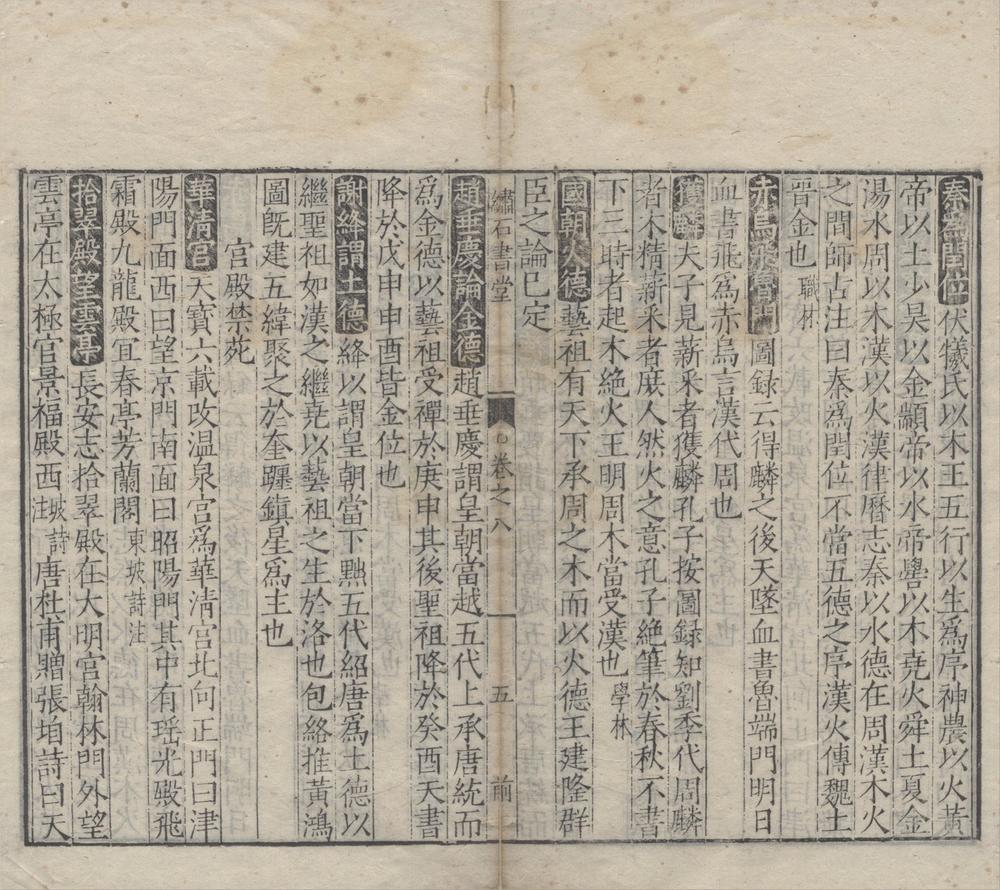 秦爲閏位 伏犧氏以木王五行以生爲序神農以火黃
帝以土少昊以金顓帝以水帝嚳以木堯火舜土夏金
湯水周以木漢以火漢律曆志秦以水德在周漢木火
之間師古注曰秦爲閏位不當五德之序漢火傳魏土
晉金也 職林
赤烏飛魯門 圖録云得麟之後天墜血書魯端門明日
血書飛爲赤烏言漢代周也
獲麟 夫子見薪采者獲麟孔子按圖録知劉季代周麟
者木精薪采者庶人然火之意孔子絶筆於春秋不書
下三時者起木絶火王明周木當受漢也 學林
國朝火德 藝祖有天下承周之木而以火德王建隆群
臣之論已定
繡石書堂 卷之八 五 前
趙垂慶論金德 趙垂慶謂皇朝當越五代上承唐統而
爲金德以藝祖受禪於庚申其後聖祖降於癸酉天書
降於戊申申酉皆金位也
謝絳謂土德 絳以謂皇朝當下黜五代紹唐爲土德以
繼聖祖如漢之繼堯以藝祖之生於洛也包絡推黃鴻
圖旣建五緯聚之於奎躔鎮星爲主也
宮殿禁苑
華清宮 天寶六載改温泉宮爲華清宮北向正門曰津
陽門面西曰望京門南面曰昭陽門其中有瑶光殿飛
霜殿九龍殿冝春亭芳蘭閣 東坡詩注
拾翠殿望雲亭 長安志拾翠殿在大明宮翰林門外望
雲亭在太極宮景福殿西 坡詩注 唐杜甫贈張垍詩曰天